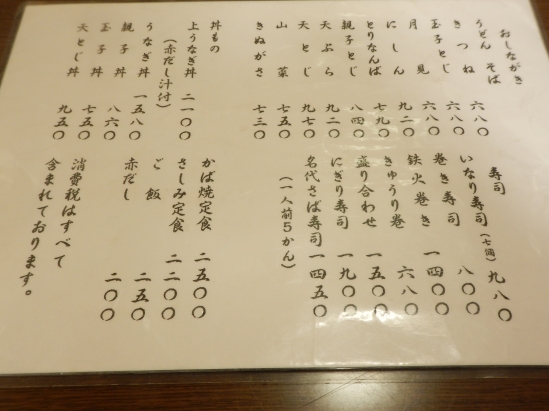 おしながき
うどん そば
きつね 六八〇
玉子とじ 六八〇
月見 六八〇
にしん 九二〇
とりなんば 七九〇
親子とじ 八四〇
天ぷら 九二〇
天とじ 九七〇
山菜 七五〇
きぬがさ 七三〇
丼もの
上うなぎ丼 二一〇〇
(赤だし汁付)
うなぎ丼 一五八〇
親子丼 八六〇
玉子丼 七五〇
天とじ丼 九五〇
寿司
いなり寿司(七個) 九八〇
巻き寿司 八〇〇
鉄火巻き 一四〇〇
きゅうり巻 六八〇
盛り合わせ 一五〇〇
にぎり寿司 一九〇〇
名代さば寿司 一四五〇
(一人前5かん)
かば焼定食 二五〇〇
さしみ定食 二二〇〇
ご飯 二五〇
赤だし 二〇〇
消費税はすべて
含まれております。